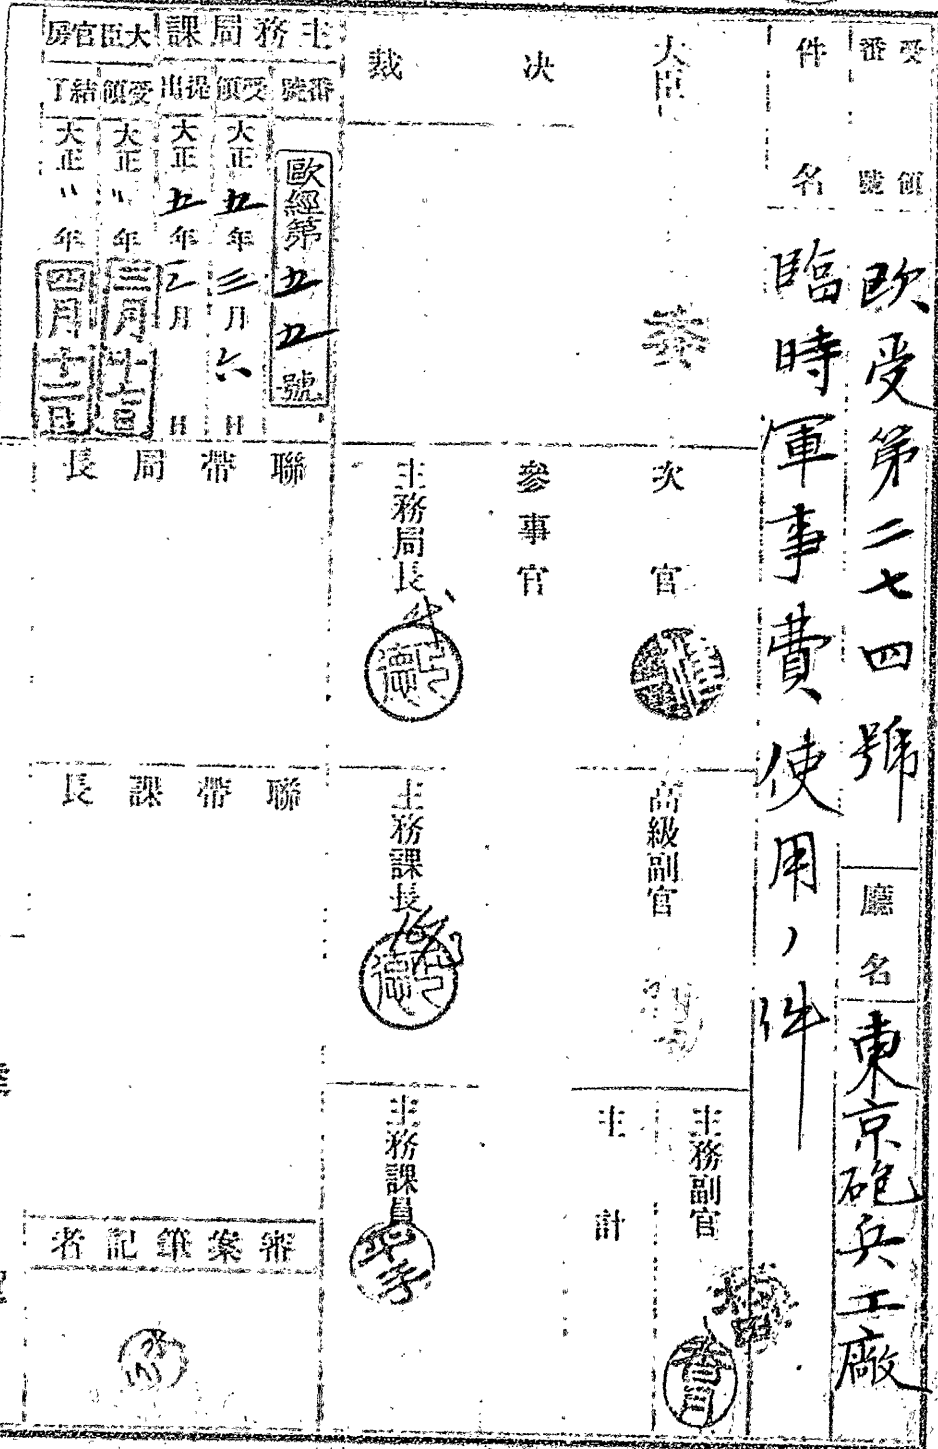 受領番號 歐受第二七四號 廳名 東京砲兵工廠
件名 臨時軍事費使用ノ件
大臣 委
次官
高級副官
主務副官
主計
決裁
參事官
主務局長 代
主務課長 代
主務課員
主務局課
番號 歐經第五五號
受領 大正五年三月六日
提出 大正五年三月 日
大臣官房
受領 大正〃年三月十七日
結了 大正〃年四月十二日
聯帶局長
聯帶課長
審案筆記者